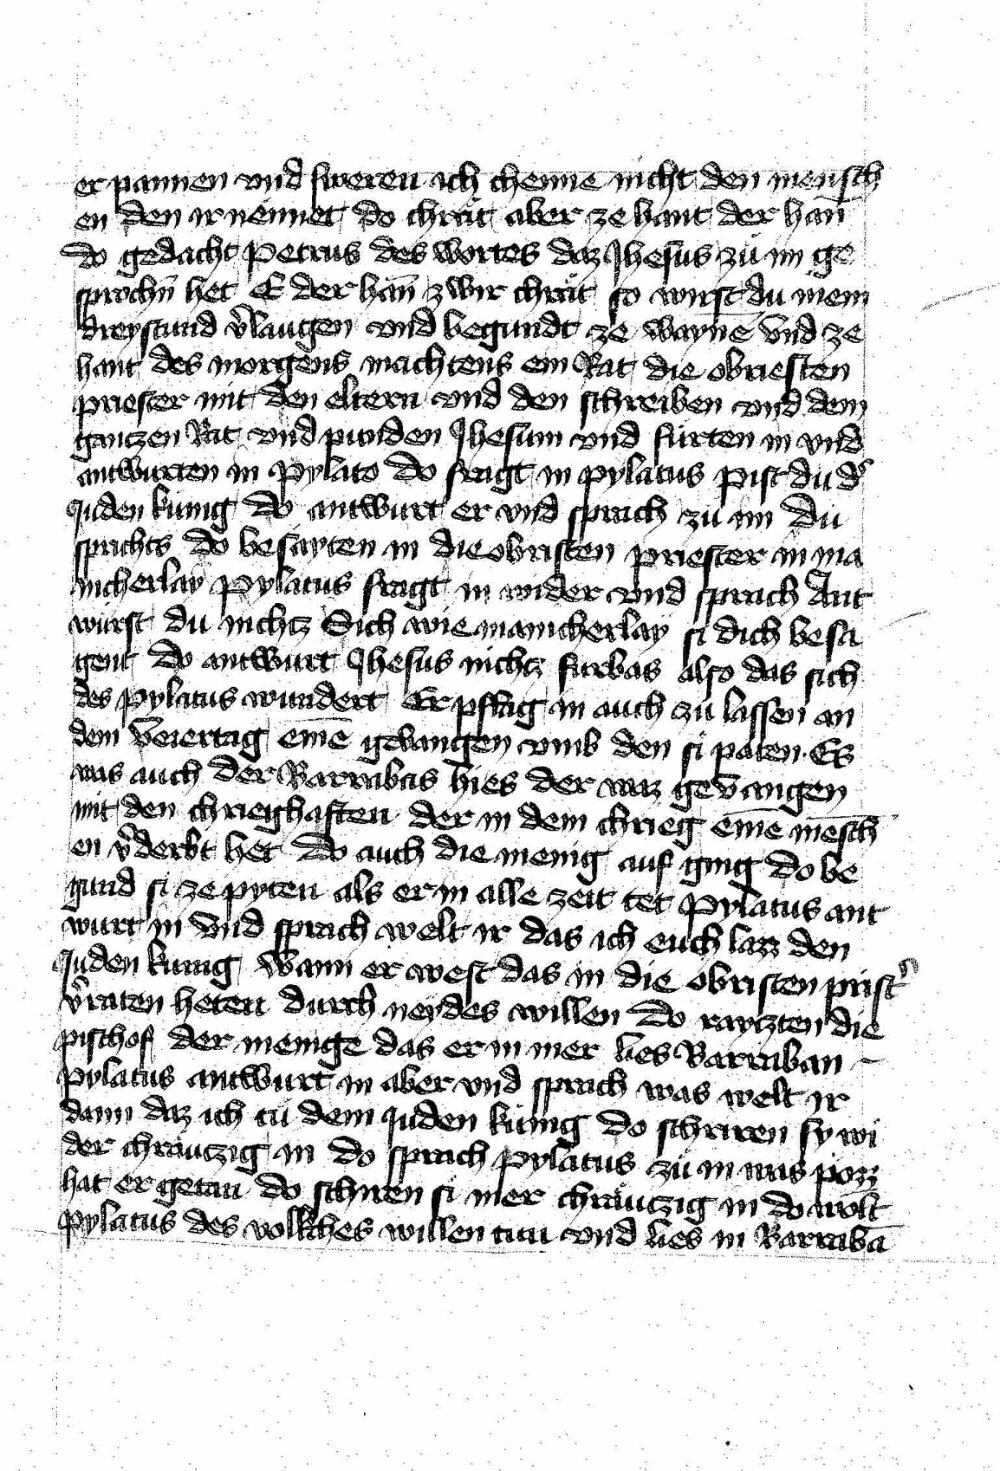 er pannen vnd sweren ich chenne nicht den mensch
en den ir nennet do chrät aber ze hant der han
do gedacht Petrus des wortes daz Jhesus zů im ge
sprochn̄ het E der han̄ zwir chrät so wirst du mein
dreystund v̓laugen vnd begundt ze waynē vnd ze
hant des morgens machtens ein Rat die obristen
priester mit den eltern vnd den schreiben vnd dem
gantzen Rat vnd punden Jhesum vnd fürten in vnd
antwurten in Pylato do fragt in pylatus pist du d̓
Juden künig do antwurt er vnd sprach zu im du
sprichts do besayten in die obristen priester in ma
nicherlay Pylatus fragt in wider vnd sprach Ant
würst du nichtz Sich wie manicherlay si dich besa
gent do antwurt Jhesus nichtz fürbas also das sich
des pylatus wundert Er pflag in auch zu lassen an
dem veiertag einē gevangen vmb den si paten. Es
was auch der Barrabas hies der waz gevangen
mit den chrieghaften der in dem chrieg einē mēsch
en v̓derbt het do auch die menig auf ging do be
gund si ze pyten als er in alle zeit tet Pylatus ant
wurt in vnd sprach welt ir das ich euch lazz den
Juden kunig wann er west das in die obristen prist̓
v̓raten heten durch neydes willen do rayzten die
pischof der menige das er in mer lies Barraban
Pylatus antwurt in aber vnd sprach was welt ir
dann daz ich tü dem Juden künig do schriren sy wi
der chräutzig in do sprach pylatus zü in was pözz
hat er getan do schriren si mer chräutzig in do wolt
pylatus des volkches willen tun vnd lies in Barrabā